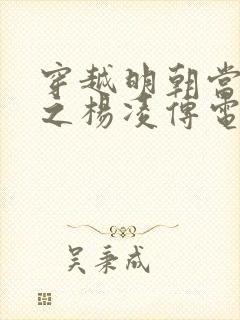 穿越明朝当
之杨凌傳電
吴秉成